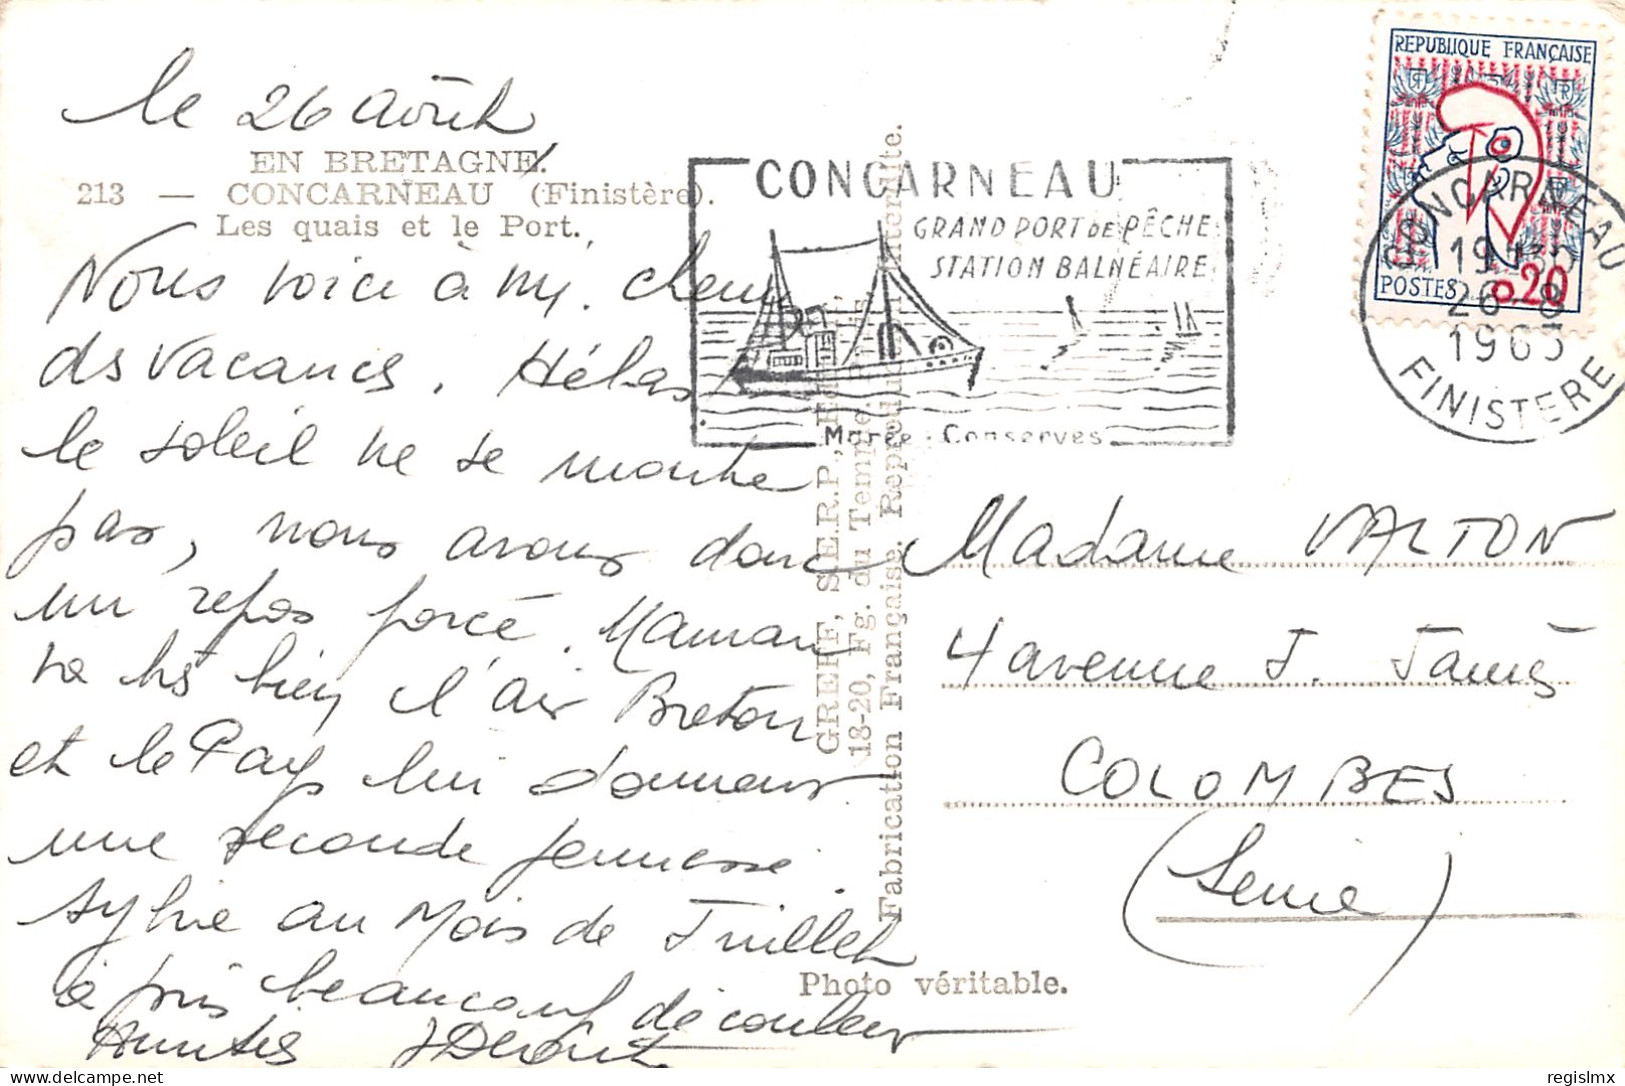 le 26 août
EN BRETAGNE.
213 — CONCARNEAU (Finistère).
Les quais et le Port.
Nous voici à mi. chemin
ds vacances. Hélas
le soleil ne se montre
pas, nous avons donc
un repos forcé. Maman
va bien l'air Breton
et le Pays lui donnent
une seconde jeunesse.
Sylvie au Mois de Juillet
a pris beaucoup de couleur
Amitiés
CONCARNEAU
GRAND PORT DE PÊCHE
STATION BALNÉAIRE
Marée - Conserves
REPUBLIQUE FRANÇAISE
POSTES 0,20
CONCARNEAU
19H30
26-8
1963
FINISTERE
GREFF, S.E.R.P.,
18-20, Fg. du Temple,
Fabrication Française. Reproduction interdite.
Madame VALTON
4 avenue J. Jaurès
COLOMBES
(Seine)
Photo véritable.
delcampe.net
regislmx